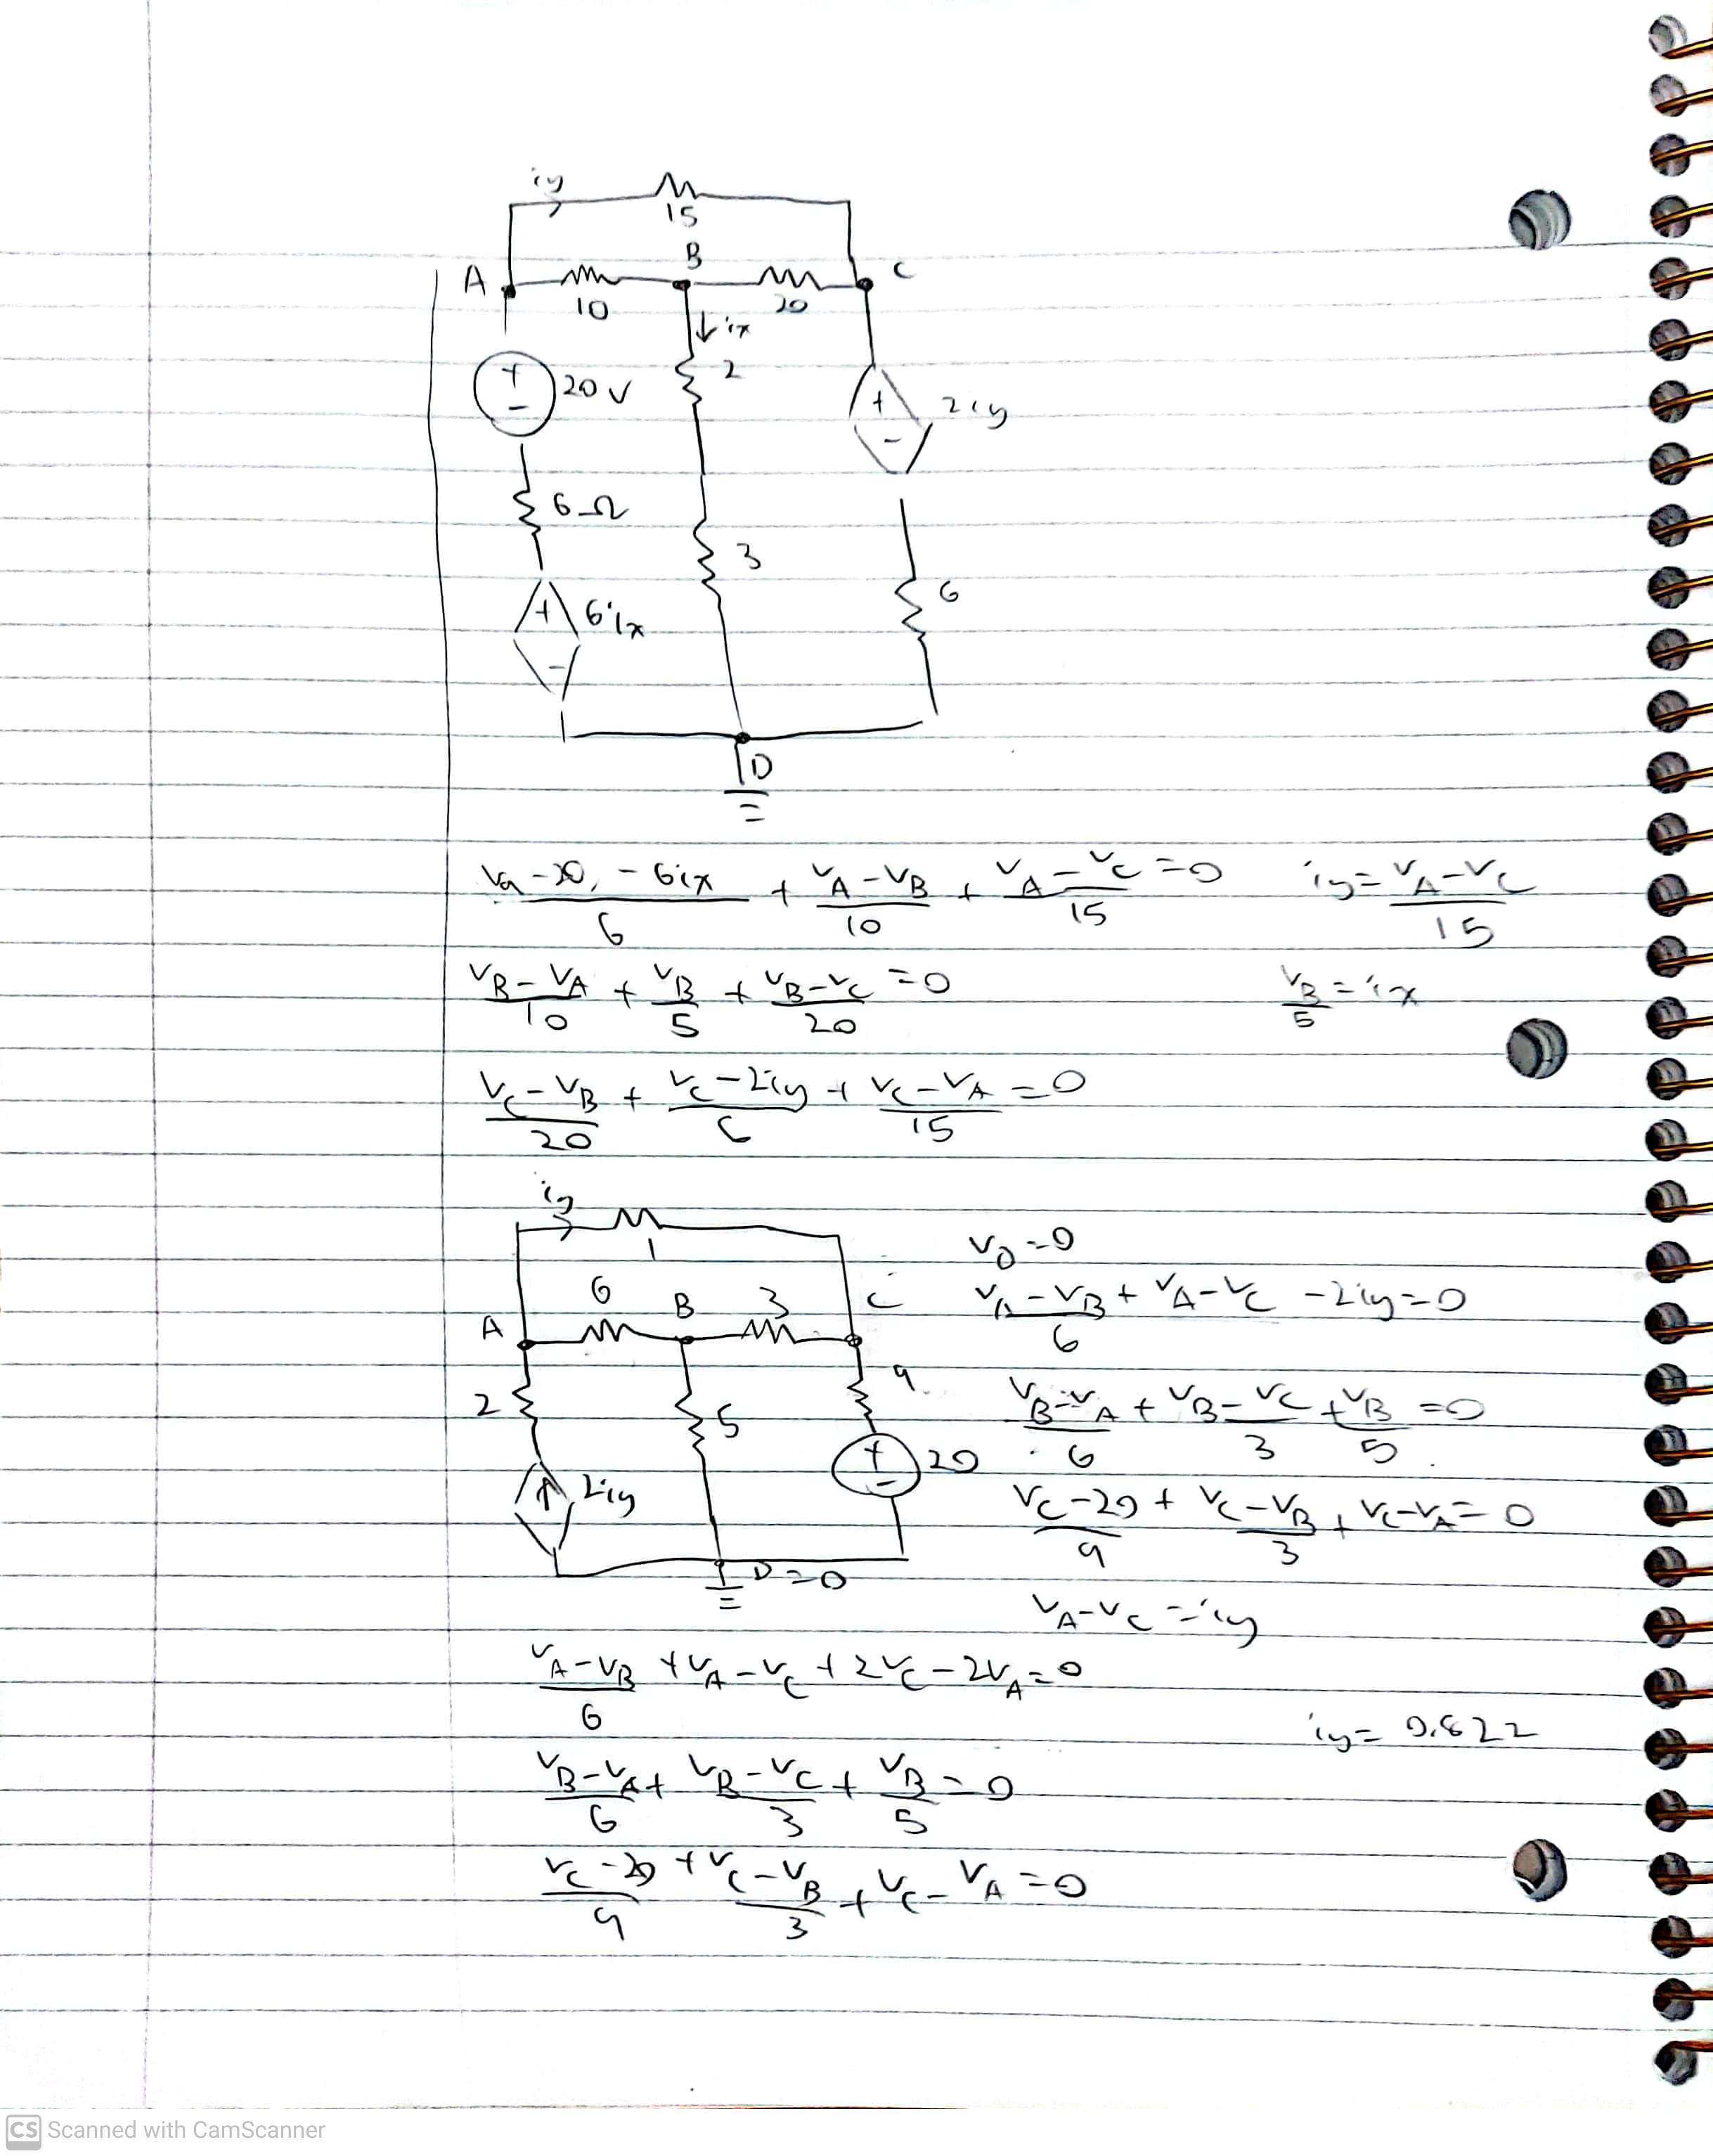 iy
15
A 10 B 20 C
↓ix
+ - 20 V 2 + - 2iy
6 Ω
3 6
+ - 6ix
D
Va - 20, - 6ix / 6 + VA - VB / 10 + VA - VC / 15 = 0 iy = VA - VC / 15
VB - VA / 10 + VB / 5 + VB - VC / 20 = 0 VB / 5 = ix
VC - VB / 20 + VC - 2iy / 6 + VC - VA / 15 = 0
iy
1
A 6 B 3 C
2 5 9
↑ 2iy + - 20
D = 0
VD = 0
VA - VB / 6 + VA - VC - 2iy = 0
VB - VA / 6 + VB - VC / 3 + VB / 5 = 0
VC - 20 / 9 + VC - VB / 3 + VC - VA = 0
VA - VC = iy
VA - VB / 6 + VA - VC + 2VC - 2VA = 0
iy = 0.822
VB - VA / 6 + VB - VC / 3 + VB / 5 = 0
VC - 20 / 9 + VC - VB / 3 + VC - VA = 0
CS Scanned with CamScanner